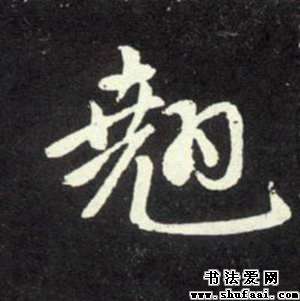 翘
书法爱网
www.shufaai.com